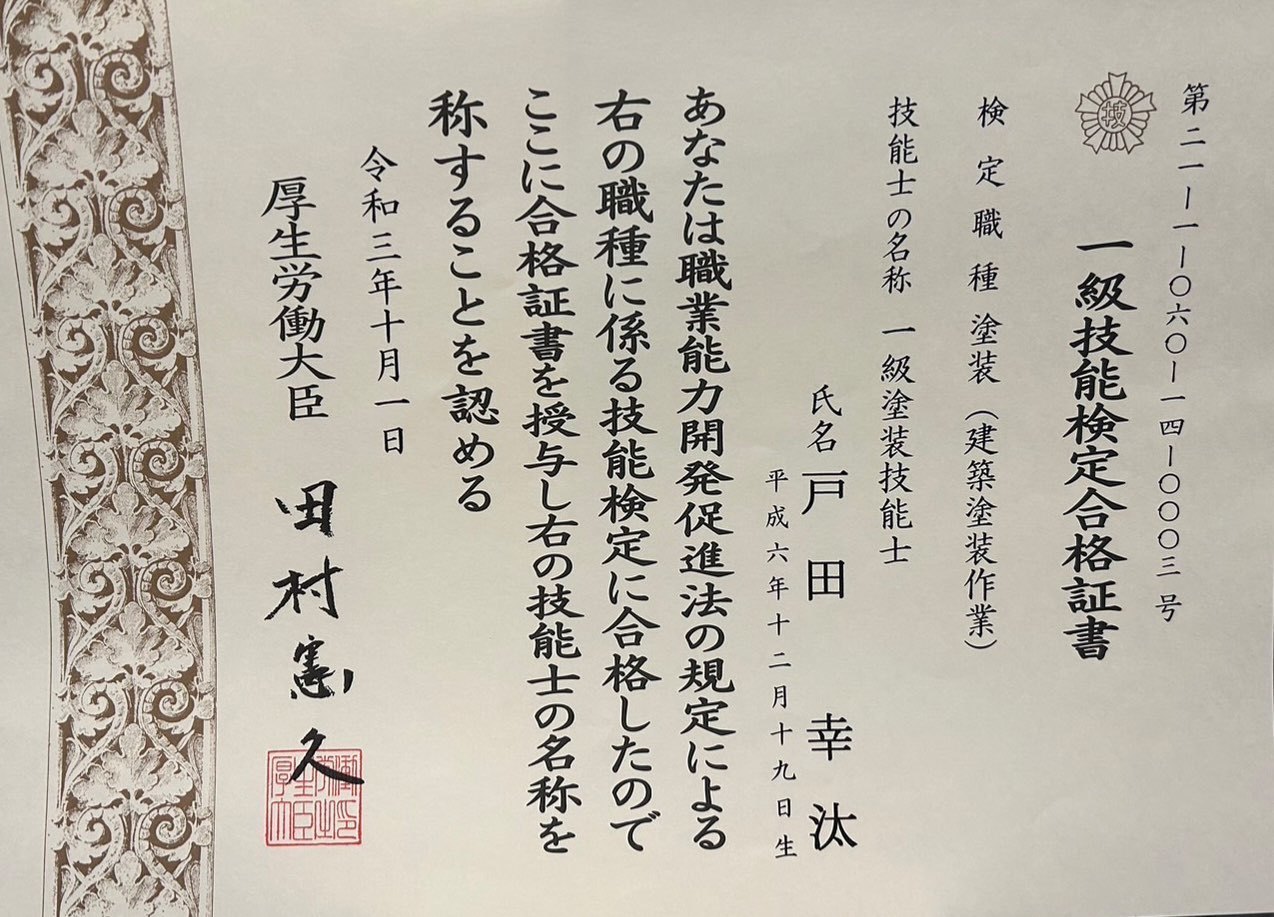 第二一-一-〇六〇-一四-〇〇〇三号
技
一級技能検定合格証書
検定職種 塗装（建築塗装作業）
技能士の名称 一級塗装技能士
氏名 戸田 幸汰
平成六年十二月十九日生
あなたは職業能力開発促進法の規定による
右の職種に係る技能検定に合格したので
ここに合格証書を授与し右の技能士の名称を
称することを認める
令和三年十月一日
厚生労働大臣 田村憲久